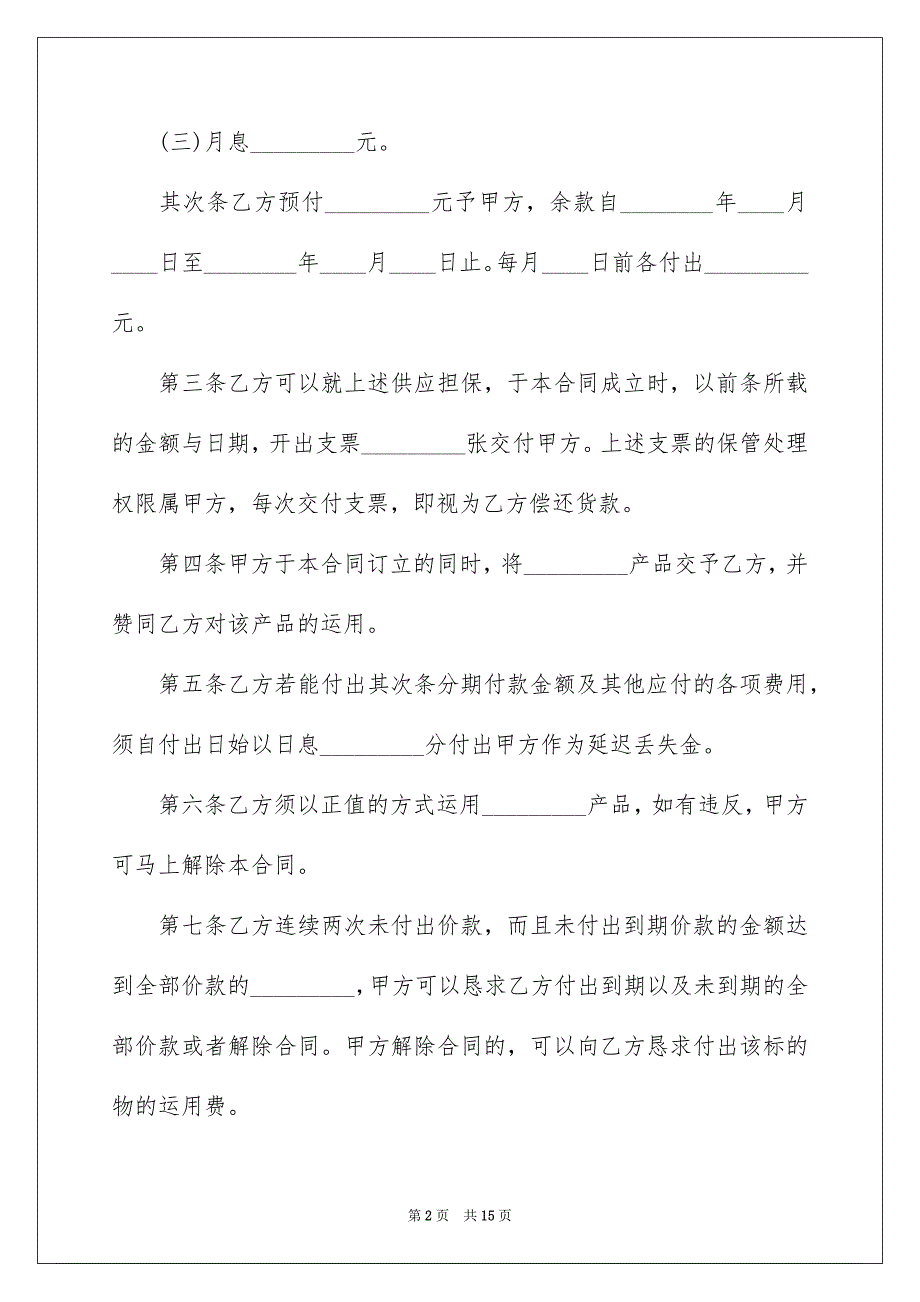 (三)月息_________元。
其次条乙方预付_________元予甲方，余款自________年____月
____日至________年____月____日止。每月____日前各付出_________
元。
第三条乙方可以就上述供应担保，于本合同成立时，以前条所载
的金额与日期，开出支票_________张交付甲方。上述支票的保管处理
权限属甲方，每次交付支票，即视为乙方偿还货款。
第四条甲方于本合同订立的同时，将_________产品交予乙方，并
赞同乙方对该产品的运用。
第五条乙方若能付出其次条分期付款金额及其他应付的各项费用，
须自付出日始以日息_________分付出甲方作为延迟丢失金。
第六条乙方须以正值的方式运用_________产品，如有违反，甲方
可马上解除本合同。
第七条乙方连续两次未付出价款，而且未付出到期价款的金额达
到全部价款的_________，甲方可以恳求乙方付出到期以及未到期的全
部价款或者解除合同。甲方解除合同的，可以向乙方恳求付出该标的
物的运用费。
第 2 页 共 15 页